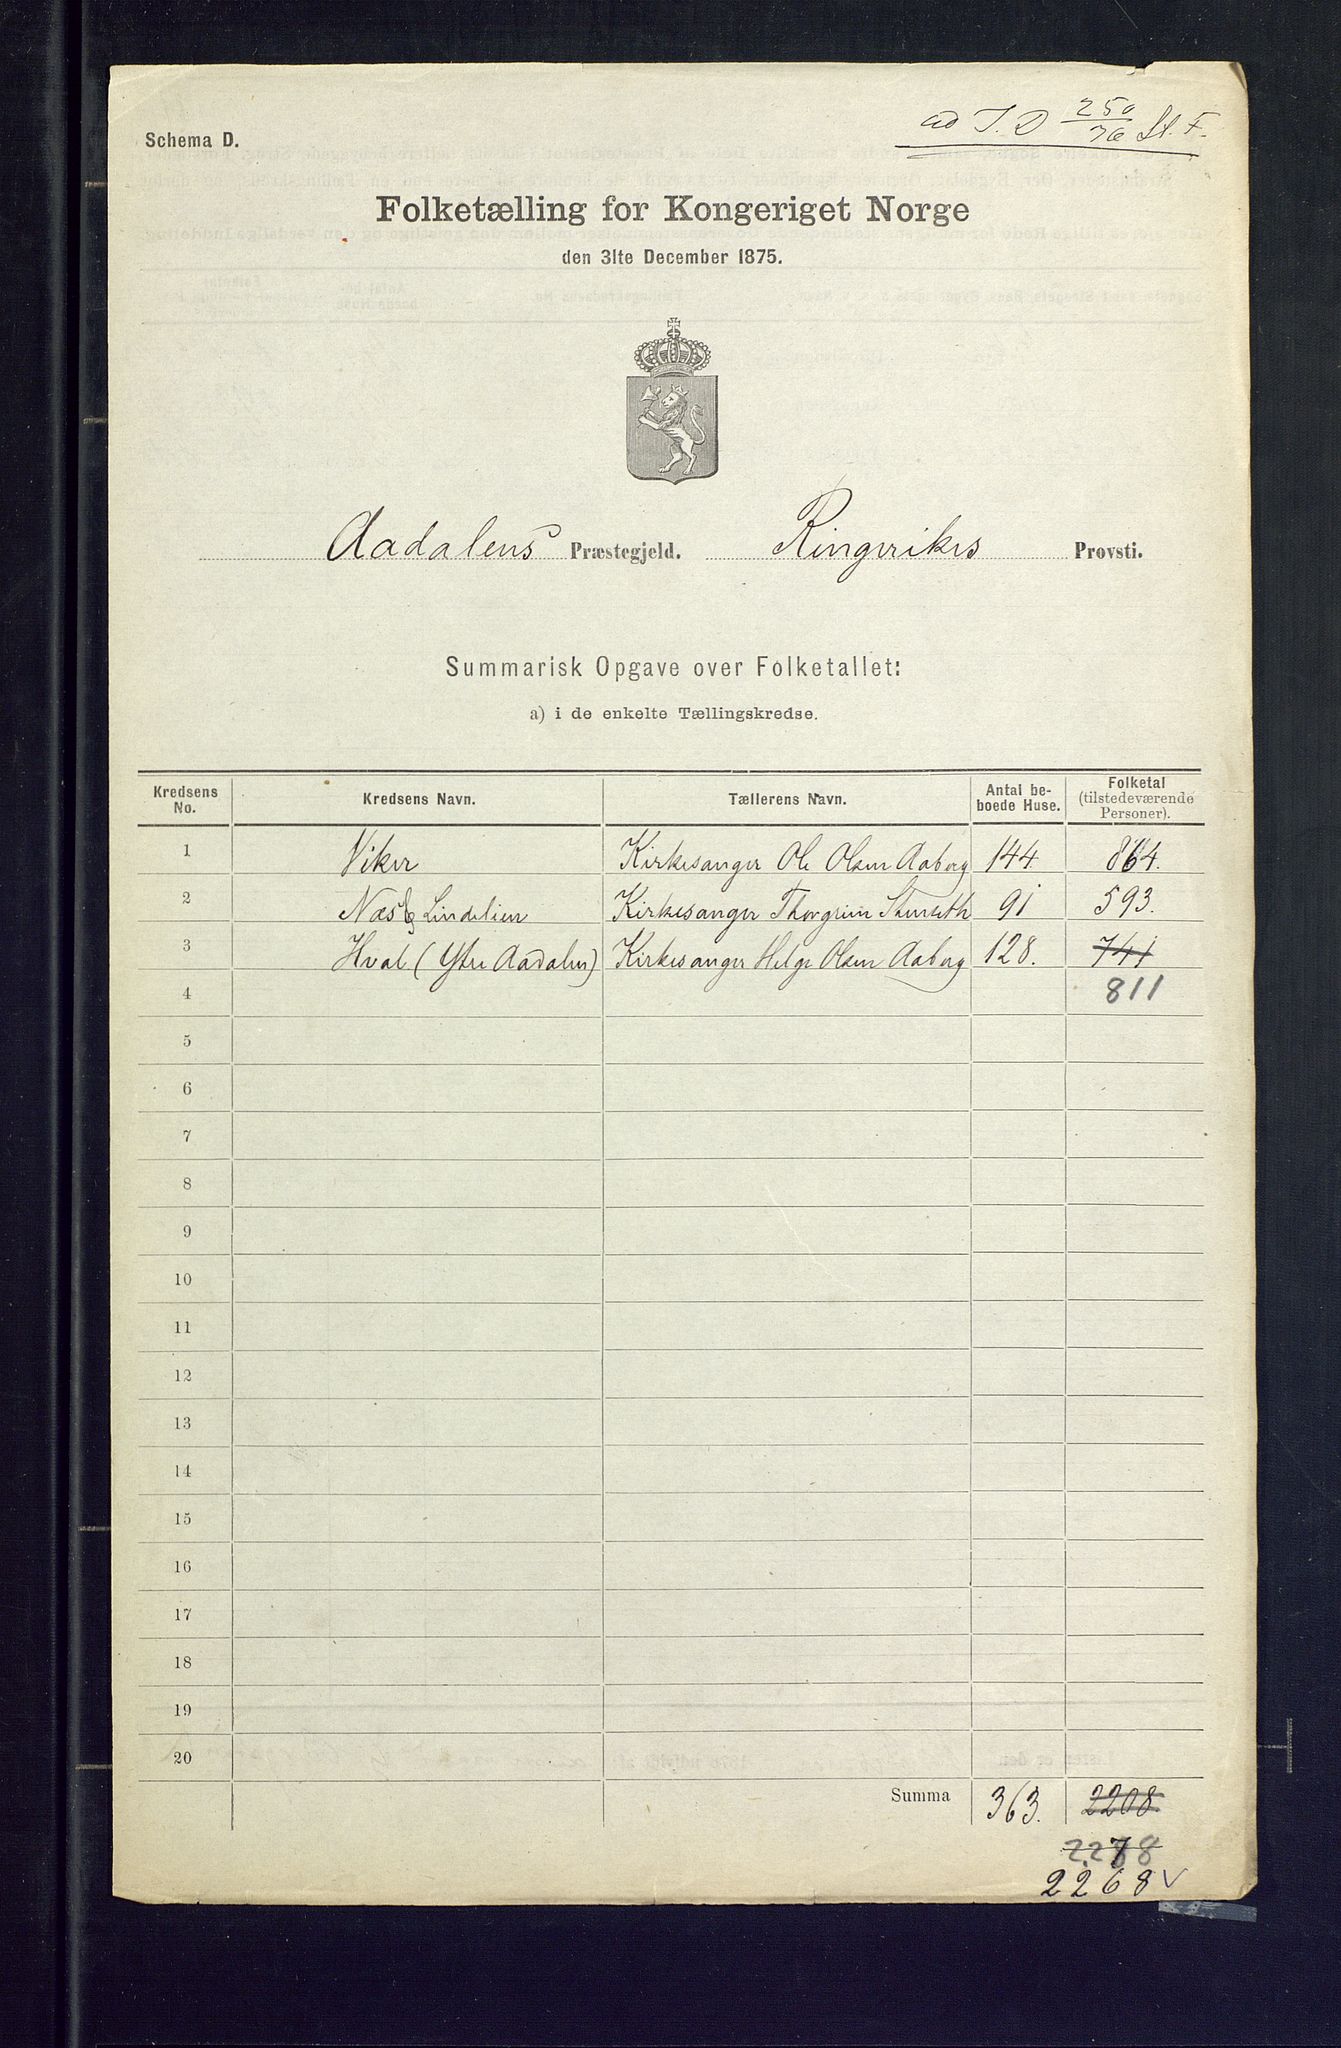 ad J. D 250/76 St. F.
Schema D.
Folketælling for Kongeriget Norge
den 31te December 1875.
Aadalens Præstegjeld. Ringerikes Provsti.
Summarisk Opgave over Folketallet:
a) i de enkelte Tællingskredse.
Kredsens No. Kredsens Navn. Tællerens Navn. Antal beboede Huse. Folketal (tilstedeværende Personer).
1 Viker Kirkesanger Ole Olsen Aaberg 144. 864.
2 Næs & Lindelien Kirkesanger Thorgrim 91 593.
3 Hval (Ytre Aadalen) Kirkesanger Helge Olsen Aaberg 128. 741
4 811
5
6
7
8
9
10
11
12
13
14
15
16
17
18
19
20
Summa 363. 2208
2268